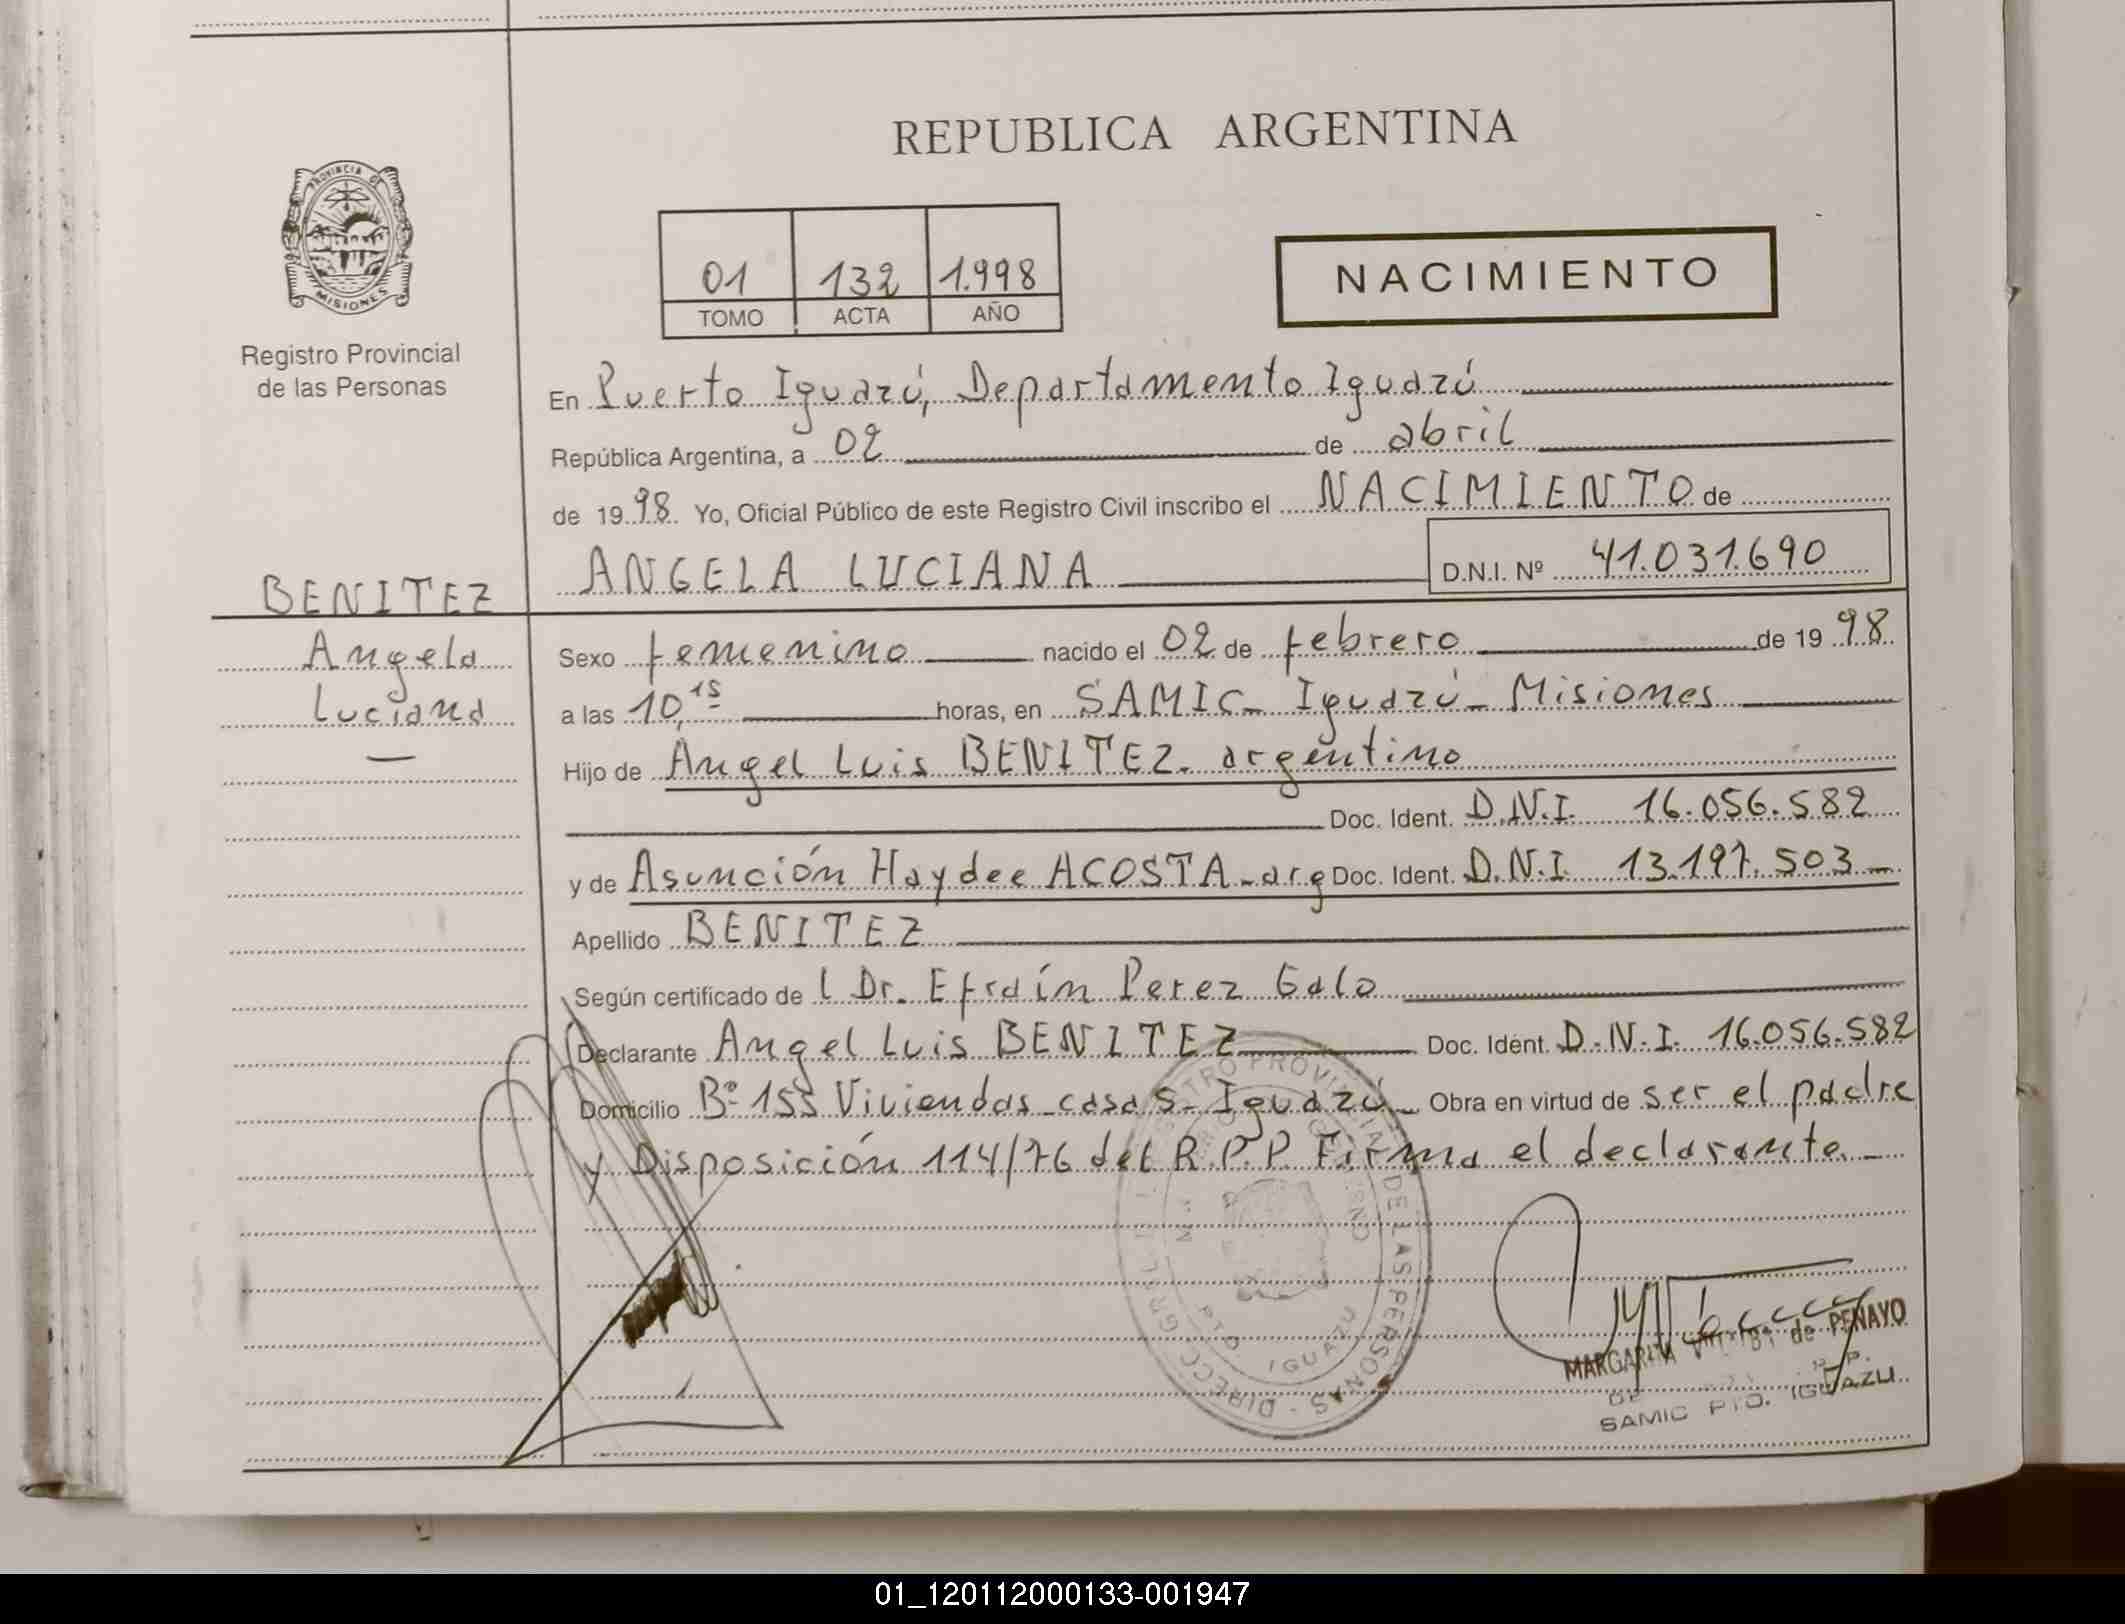 REPUBLICA ARGENTINA
PROVINCIA DE
MISIONES
Registro Provincial
de las Personas
01 132 1.998
TOMO ACTA AÑO
NACIMIENTO
En Puerto Iguazú, Departamento Iguazú
República Argentina, a 02 de abril
de 1998 Yo, Oficial Público de este Registro Civil inscribo el NACIMIENTO de
ANGELA LUCIANA D.N.I. Nº 41.031.690
BENITEZ
Angela
Luciana
Sexo femenino nacido el 02 de febrero de 1998
a las 10,15 horas, en SAMIC - Iguazú - Misiones
Hijo de Angel Luis BENITEZ - argentino
Doc. Ident. D.N.I. 16.056.582
y de Asunción Haydee ACOSTA - arg Doc. Ident. D.N.I. 13.197.503 -
Apellido BENITEZ
Según certificado de l Dr. Efraín Perez Galo
Declarante Angel Luis BENITEZ Doc. Ident. D.N.I. 16.056.582
Domicilio Bº 155 Viviendas - casa 5 - Iguazú - Obra en virtud de ser el padre
y Disposición 114/76 del R.P.P. Firma el declarante. -
PROVINCIAL DE LAS PERSONAS - DIRECC. GRAL.
PTO. IGUAZU
MARGARITA de PENAYO
SAMIC PTO. IGUAZU
01_120112000133-001947